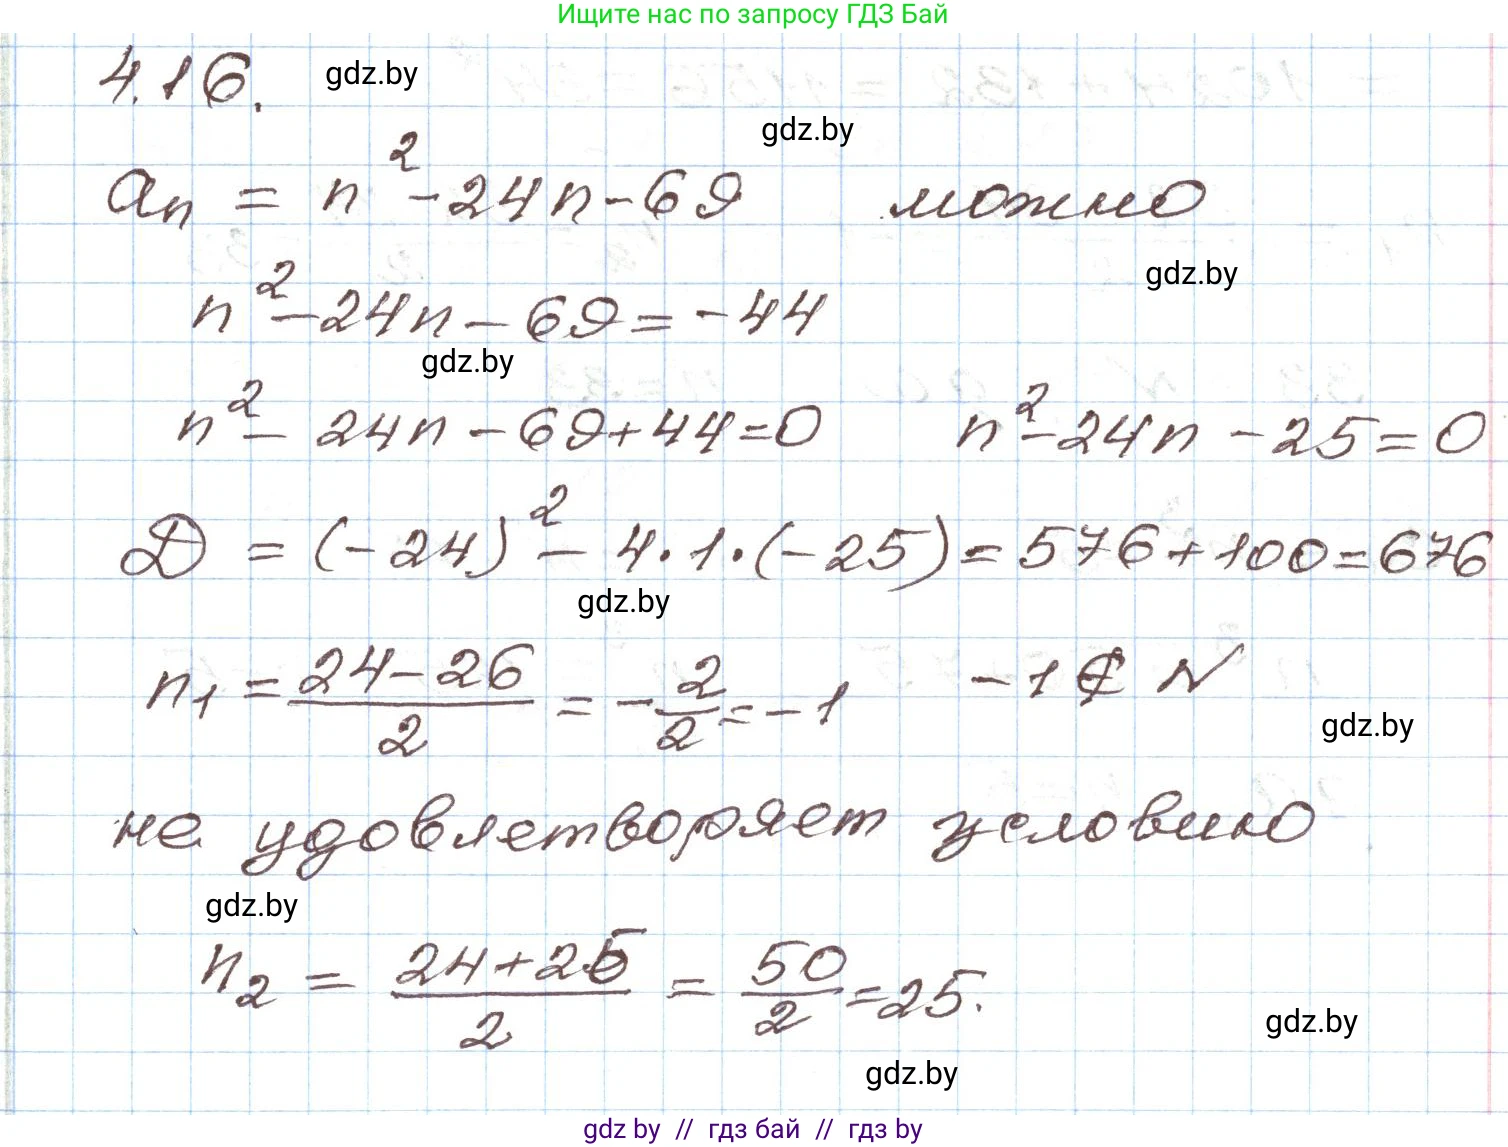 Ищите нас по запросу ГДЗ Бай
4.16. gdz.by
gdz.by
aₙ = n² - 24n - 69 можно
gdz.by
n² - 24n - 69 = -44
gdz.by
n² - 24n - 69 + 44 = 0 n² - 24n - 25 = 0
D = (-24)² - 4·1·(-25) = 576 + 100 = 676
gdz.by
n₁ = (24 - 26)/2 = -2/2 = -1 -1 ∉ N
gdz.by
не удовлетворяет условию
gdz.by
n₂ = (24 + 26)/2 = 50/2 = 25.
gdz.by
gdz.by
gdz.by // гдз бай // гдз by